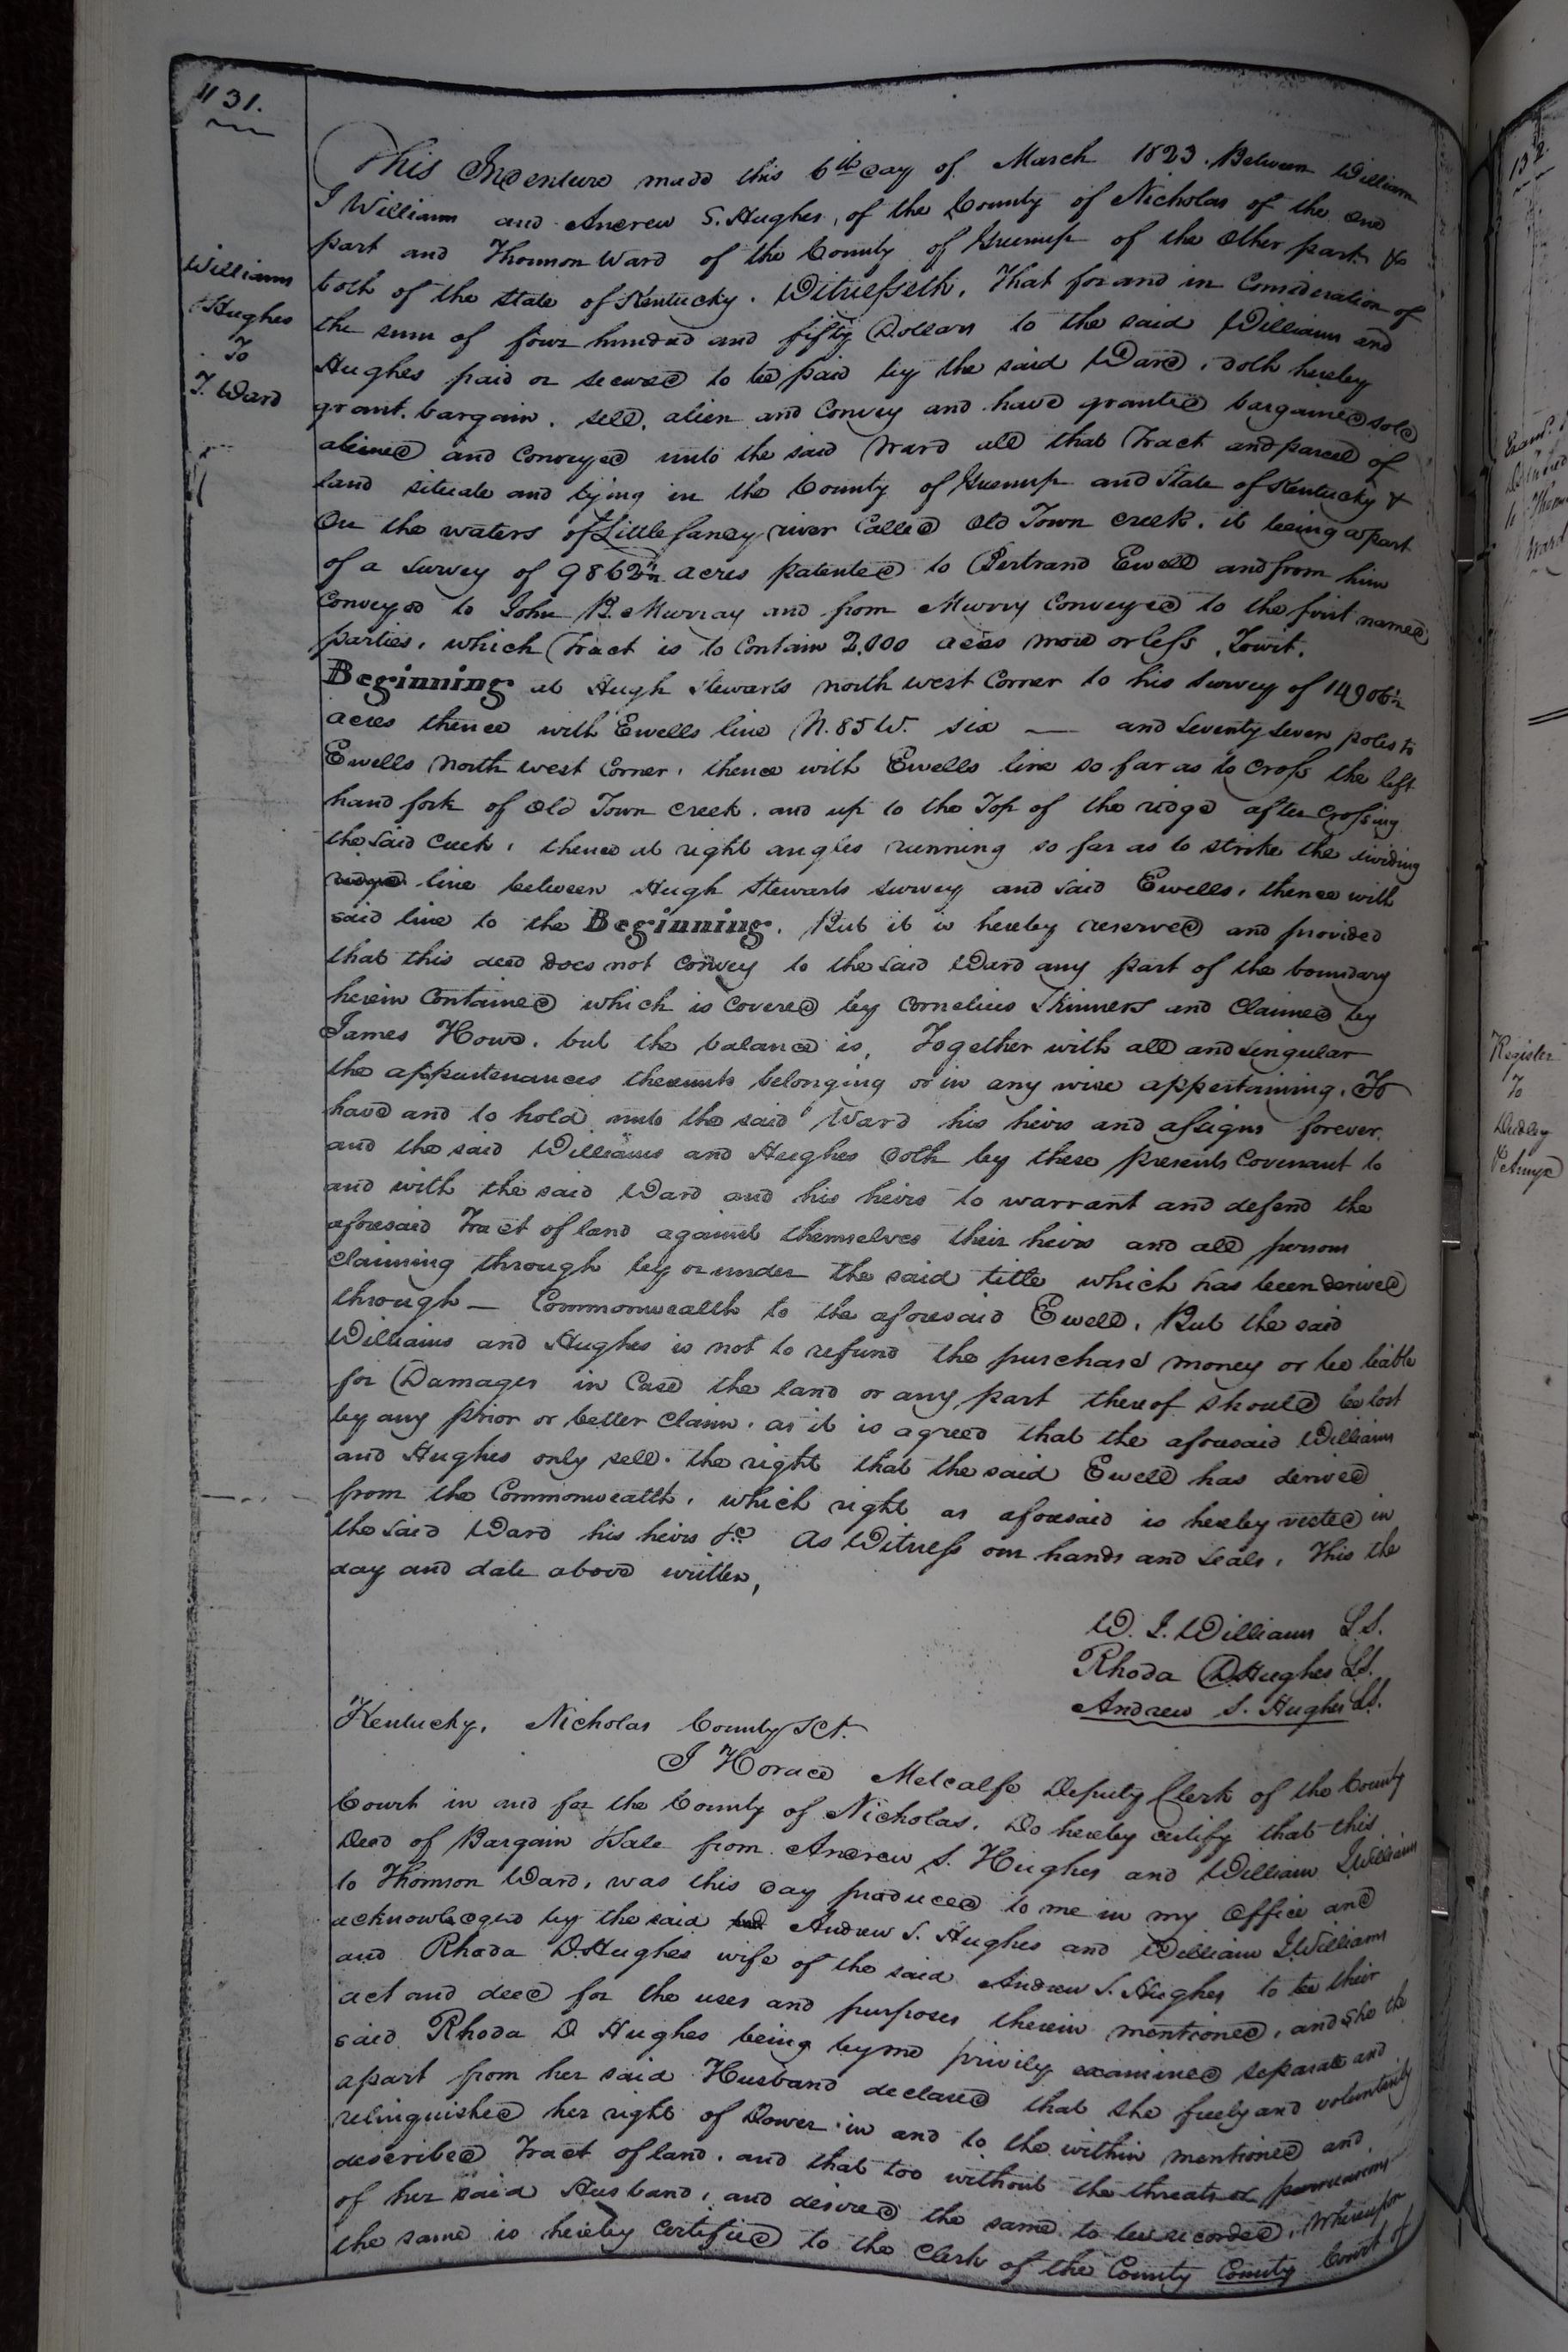 131.
Williams
& Hughes
To
T. Ward
This Indenture made this 6th day of March 1823. Between William
I Williams and Andrew S. Hughes, of the County of Nicholas of the one
part and Thomson Ward of the County of Greenup of the other part &
both of the State of Kentucky. Witnesseth, That for and in Consideration of
the sum of four hundred and fifty Dollars to the said Williams and
Hughes paid or secured to be paid by the said Ward, doth hereby
grant, bargain, sell, alien and Convey and have granted bargained sold
aliened and Conveyed unto the said Ward all that Tract and parcel of
land situate and lying in the County of Greenup and State of Kentucky &
On the waters of Little Sandy river Called Old Town Creek, it being a part
of a Survey of 9862½ acres patented to Bertrand Ewell and from him
Conveyed to John B. Murray and from Murry Conveyed to the first named
parties, which Tract is to Contain 2,000 acres more or less, Towit,
Beginning at Hugh Stewarts north west Corner to his Survey of 14906½
acres thence with Ewells line N. 85 W. six — and Seventy Seven poles to
Ewells North west Corner, thence with Ewells line so far as to Cross the left
hand fork of Old Town Creek, and up to the Top of the ridge after Crossing
the said Creek, thence at right angles running so far as to strike the dividing
ridge line between Hugh Stewarts survey and said Ewells, thence with
said line to the Beginning. But it is hereby reserved and provided
that this deed does not Convey to the said Ward any part of the boundary
herein Contained which is Covered by Cornelius Skinners and Claimed by
James Howe, but the balance is, Together with all and singular
the appurtenances thereunto belonging or in any wise appertaining. To
have and to hold unto the said Ward his heirs and assigns forever.
and the said Williams and Hughes doth by these presents Covenant to
and with the said Ward and his heirs to warrant and defend the
aforesaid Tract of land against themselves their heirs and all persons
Claiming through by or under the said title which has been derived
through — Commonwealth to the aforesaid Ewell, But the said
Williams and Hughes is not to refund the purchase money or be liable
for Damages in Case the land or any part thereof should be lost
by any prior or better Claim, as it is agreed that the aforesaid Williams
and Hughes only sell the right that the said Ewell has derived
from the Commonwealth, which right as aforesaid is hereby vested in
the said Ward his heirs &c As Witness our hands and seals, This the
day and date above written,
W. I. Williams L.S.
Rhoda D Hughes L.S.
Andrew S. Hughes L.S.
Kentucky, Nicholas County Sct.
I Horace Metcalfe Deputy Clerk of the County
Court in and for the County of Nicholas, Do hereby certify that this
Deed of Bargain & Sale from Andrew S. Hughes and William I Williams
to Thomson Ward, was this day produced to me in my Office and
acknowledged by the said Andrew S. Hughes and William I Williams
and Rhoda D Hughes wife of the said Andrew S. Hughes to be their
act and deed for the uses and purposes therein mentioned, and she the
said Rhoda D Hughes being by me privily examined separate and
apart from her said Husband declared that she freely and voluntarily
relinquished her right of Dower in and to the within mentioned and
described Tract of land, and that too without the threats or persuasions
of her said Husband, and desired the same to be recorded, Whereupon
the same is hereby Certified to the Clerk of the County County Court of
132.
Register
To
Dudley